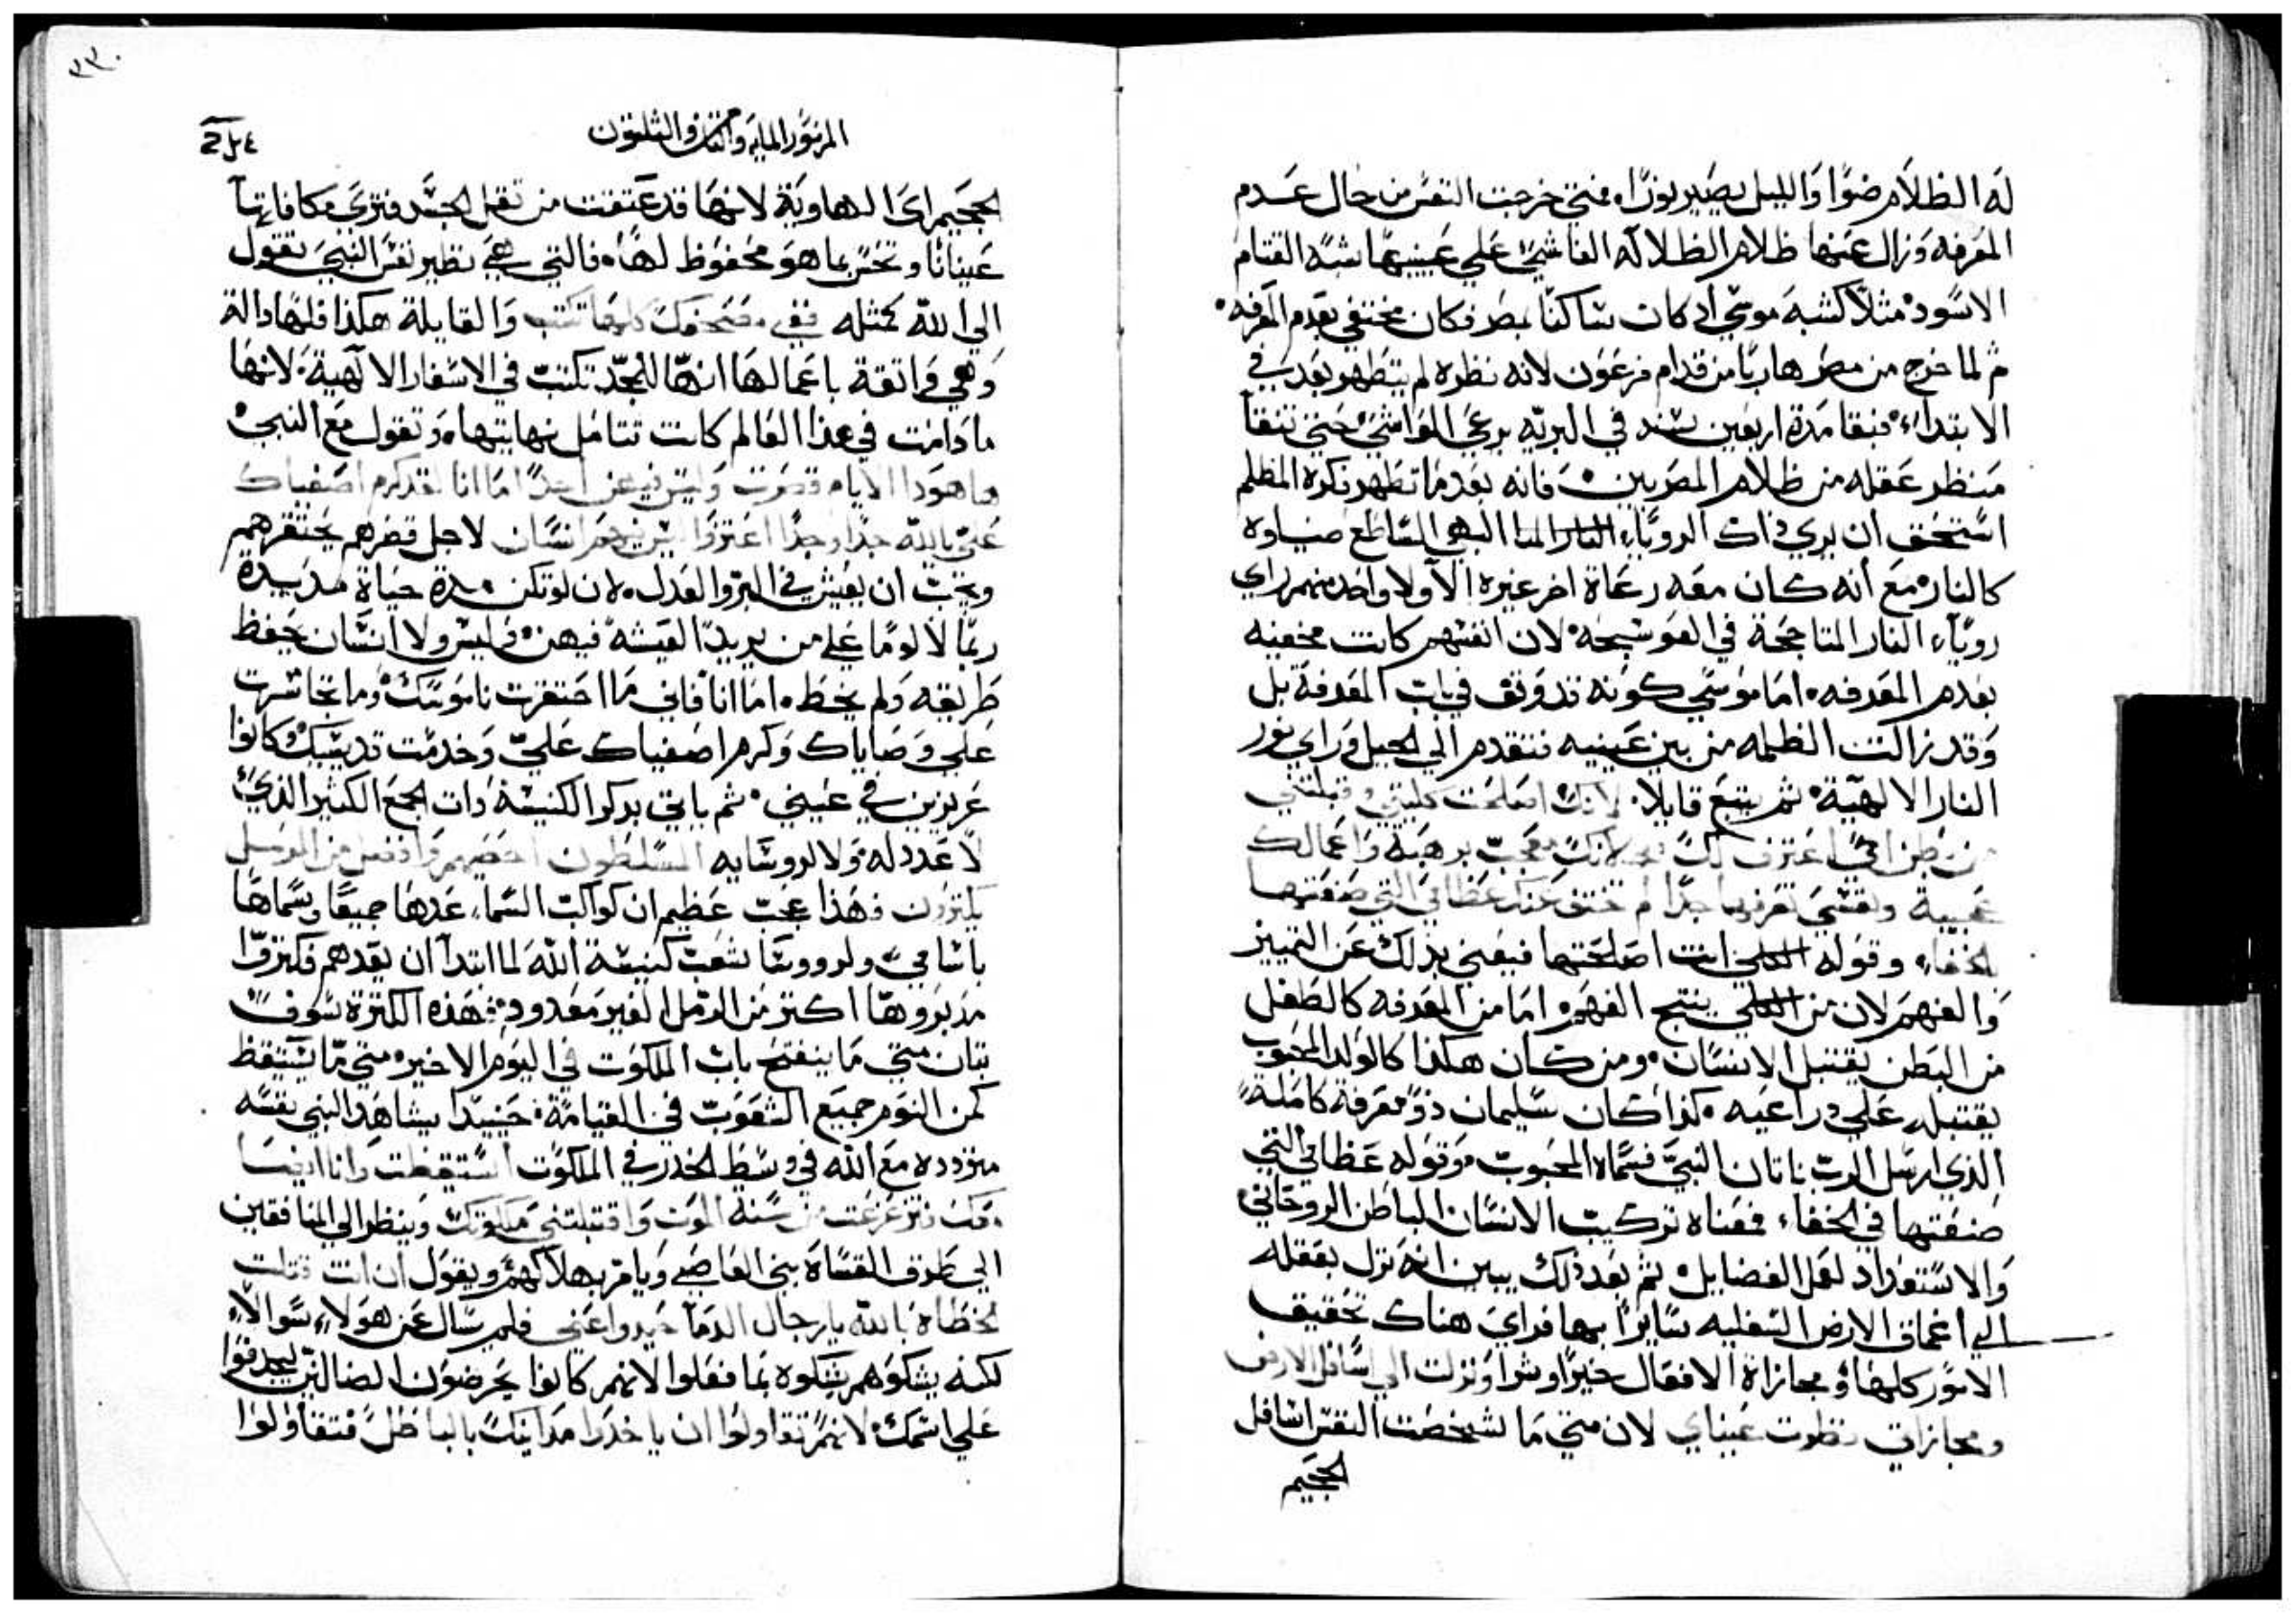 له الظلام ضوًا والليل يصير نورًا، فمتي خرجت النفس من حال عدم
المعرفه وزال عنها ظلام الظلاله الغاشي علي عينيها شبه القتام
الاسود، مثلاً كشبه موسي اد كان ساكنًا بمصر فكان مختفي بعدم المعرفه.
ثم لما خرج من مصر هاربًا من قدام فرعون لانه نظره لم يتطهر بعد في
الابتداء، فبقا مدة اربعين سنه في البريه يرعي المواشي حتي تنقا
منظر عقله من ظلام المصريين، فانه بعد ما تطهر فكره المظلم
استحق ان يري داك الرويا البهي الساطع ضياوه
كالنار، مع أنه كان معه رعاة اخر غيره الا ولا واحد منهم راي
روياء النار المتاججة في العوسجه، لان انفسهم كانت مخفيه
بعدم المعرفه، اما موسي كونه قد وقف في باب المعرفة بل
وقد زالت الظلمه من بين عينيه فتقدم الي الجبل وراي نور
النار الالهية، ثم يتبع قايلاً. لانك اصلحت كليتي وقبلتني
من بطن امي اعترف لك لانك معجب برهبة واعمالك
عجيبة ونفسي تعرفها جدًا لم تختف عنك عظامي التي صنعتها
بالخفاء، وقوله انت اصلحتها فيعني بذلك عن التمييز
والفهم لان من الكلي ينتج الفهم، اما من المعرفه كالطفل
من البطن يقتبل الانسان، ومن كان هكذا كالولد المحبوب
يقتبل علي دراعيه، كذا كان سليمان ذو معرفة كاملة،
الذي ارسل الرب ناتان النبي فسماه المحبوب، وقوله عظامي التي
صنعتها في الخفاء، فمعناه تركيب الانسان الباطن الروحاني
والاستعداد لعمل الفضايل، ثم بعد ذلك يبين انه نزل بعقله
الي اعماق الارض السفليه سايرًا بها فراي هناك تحقيق
الامور كلها، ومجازاة الافعال خيرًا وشرا ونزلت الي اسافل الارض
ومجازاتي نظرت عيناي لان متي ما تشخصت النفس اسافل
الجحيم
٣٣٠
المزمور الماية والثامن والثلثون
الجحيم اي الهاوية لانها قد عتقت من ثقل الجسد فتري مكافاتها
عينانًا وتحس بما هو محفوظ لها، فالتي هي نظير نفس النبي تقول
الي الله كمثله ففي مصحفك كلها تكتب والقايلة هكذا فلها دالة
وهي واثقة باعمالها انها للمجد تكتب في الاسفار الالهية، لانها
ما دامت في هذا العالم كانت تتامل نهايتها، وتقول مع النبي
ها هودا الايام قصرت وليس فيهن احدًا اما انا لقد كرم اصفياك
علي يالله جدًا وجدًا اعتزوا ليس فيهم انسان لاجل قصرهم يحتقرهم
ويحب ان يعيش في البر والعدل، لان لو تكن مدة حياة مديدة
ربما لا لومًا علي من يريد العيشه فيهن، فليس ولا انسان يحفظ
طريقه ولم يخط، اما انا فاني ما احتقرت ناموسك، وما تجاسرت
علي وصاياك وكرم اصفياك علي وخدمت قديسيك وكانوا
عزيزين في عيني، ثم ياتي بدكر الكنيسة دات الجمع الكثير الذي
لا عدد له ولا لروسايه المسلطون احصيهم وافضل من الرمل
يكثرون فهذا عجب عظيم ان كواكب السماء عدها جميعًا وسماها
باسامي، ولرووسا شعب كنيسة الله لما ابتدا ان يعدهم فكثروا
مدبروها اكثر من الرمل الغير معدود، فهذه الكثرة سوف
تبان متي ما ينفتح باب الملكوت في اليوم الاخير، متي ما يستيقظ
كمن النوم جميع الشعوب في القيامة، حينيد يشاهد النبي نفسه
متردده مع الله في وسط الخدر في الملكوت استيقظت وانا ايضًا
معك وتزعزعت من سنة الموت واقتبلتني ملكوتك وينظر الي المنافقين
الي طوف القساة بني العاصي ويامر بهلاكهم، ويقول ان انت قتلت
الخطاة ياالله يارجال الدما حيدوا عني فلم سال عن هولاء سوالاً،
لكنه يشكوهم بشكوه بما فعلوا لانهم كانوا يحرضون الضالين ليجدفوا
علي اسمك، لانهم تقاولوا ان ياخدوا مداينك بالباطل فتقاولوا